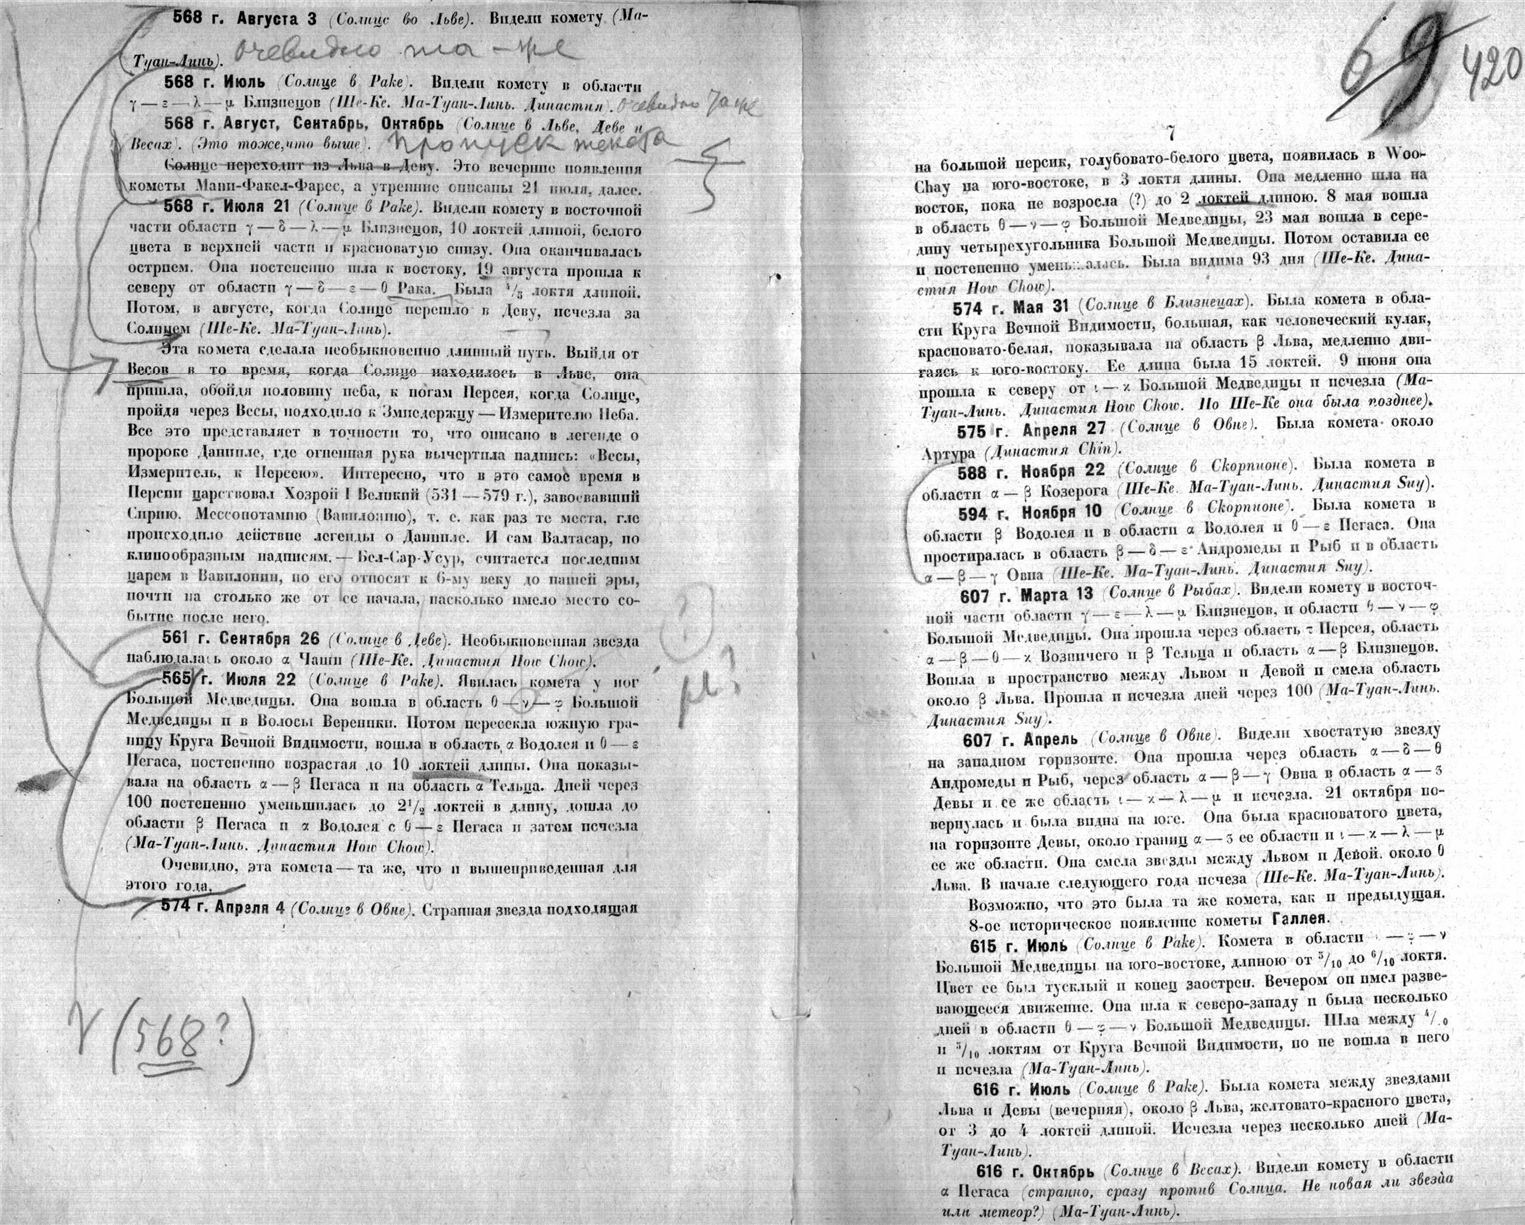 568 г. Августа 3 (Солнце во Льве). Видели комету (Ма-
Туан-Линь). очевидно та-же
568 г. Июль (Солнце в Раке). Видели комету в области
γ — ε — λ — μ Близнецов (Ше-Ке. Ма-Туан-Линь. Династия). очевидно та же
568 г. Август, Сентябрь, Октябрь (Солнце в Льве, Деве и
Весах). (Это тоже, что выше). Пропуск текста
Солнце переходит из Льва в Деву. Это вечерние появления
кометы Мани-Факел-Фарес, а утренние описаны 21 июля, далее.
568 г. Июля 21 (Солнце в Раке). Видели комету в восточной
части области γ — δ — λ — μ Близнецов, 10 локтей длиной, белого
цвета в верхней части и красноватую снизу. Она оканчивалась
острием. Она постепенно шла к востоку, 19 августа прошла к
северу от области γ — δ — ε — θ Рака. Была 4/5 локтя длиной.
Потом, в августе, когда Солнце перешло в Деву, исчезла за
Солнцем (Ше-Ке. Ма-Туан-Линь).
Эта комета сделала необыкновенно длинный путь. Выйдя от
Весов в то время, когда Солнце находилось в Льве, она
пришла, обойдя половину неба, к ногам Персея, когда Солнце,
пройдя через Весы, подходило к Змиедержцу — Измерителю Неба.
Все это представляет в точности то, что описано в легенде о
пророке Данииле, где огненная рука вычертила надпись: «Весы,
Измеритель, к Персею». Интересно, что в это самое время в
Персии царствовал Хозрой I Великий (531 — 579 г.), завоевавший
Сирию, Мессопотамию (Вавилонию), т. е. как раз те места, где
происходило действие легенды о Данииле. И сам Валтасар, по
клинообразным надписям. — Бел-Сар-Усур, считается последним
царем в Вавилонии, но его относят к 6-му веку до нашей эры,
почти на столько же от ее начала, насколько имело место со-
бытие после него.
561 г. Сентября 26 (Солнце в Деве). Необыкновенная звезда
наблюдалась около α Чаши (Ше-Ке. Династия How Chow).
565 г. Июля 22 (Солнце в Раке). Явилась комета у ног
Большой Медведицы. Она вошла в область θ — ν — φ Большой
Медведицы и в Волосы Вереники. Потом пересекла южную гра-
ницу Круга Вечной Видимости, вошла в область α Водолея и θ — ε
Пегаса, постепенно возрастая до 10 локтей длины. Она показы-
вала на область α — β Пегаса и на область α Тельца. Дней через
100 постепенно уменьшилась до 2 1/2 локтей в длину, дошла до
области β Пегаса и α Водолея с θ — ε Пегаса и затем исчезла
(Ма-Туан-Линь. Династия How Chow).
Очевидно, эта комета — та же, что и вышеприведенная для
этого года.
574 г. Апреля 4 (Солнце в Овне). Странная звезда подходящая
(568?)
69 420
7
на большой персик, голубовато-белого цвета, появилась в Woo-
Chay на юго-востоке, в 3 локтя длины. Она медленно шла на
восток, пока не возросла (?) до 2 локтей длиною. 8 мая вошла
в область θ — ν — φ Большой Медведицы, 23 мая вошла в сере-
дину четырехугольника Большой Медведицы. Потом оставила ее
и постепенно уменьшалась. Была видима 93 дня (Ше-Ке. Дина-
стия How Chow).
574 г. Мая 31 (Солнце в Близнецах). Была комета в обла-
сти Круга Вечной Видимости, большая, как человеческий кулак,
красновато-белая, показывала на область β Льва, медленно дви-
гаясь к юго-востоку. Ее длина была 15 локтей. 9 июня она
прошла к северу от ι — κ Большой Медведицы и исчезла (Ма-
Туан-Линь. Династия How Chow. Но Ше-Ке она была позднее).
575 г. Апреля 27 (Солнце в Овне). Была комета около
Артура (Династия Chin).
588 г. Ноября 22 (Солнце в Скорпионе). Была комета в
области α — β Козерога (Ше-Ке. Ма-Туан-Линь. Династия Suy).
594 г. Ноября 10 (Солнце в Скорпионе). Была комета в
области β Водолея и в области α Водолея и θ — ε Пегаса. Она
простиралась в область β — δ — ε Андромеды и Рыб и в область
α — β — γ Овна (Ше-Ке. Ма-Туан-Линь. Династия Suy).
607 г. Марта 13 (Солнце в Рыбах). Видели комету в восточ-
ной части области γ — ε — λ — μ Близнецов, и области θ — ν — φ
Большой Медведицы. Она прошла через область τ Персея, область
α — β — θ — κ Возничего и β Тельца и область α — β Близнецов.
Вошла в пространство между Львом и Девой и смела область
около β Льва. Прошла и исчезла дней через 100 (Ма-Туан-Линь.
Династия Suy).
607 г. Апрель (Солнце в Овне). Видели хвостатую звезду
на западном горизонте. Она прошла через область α — δ — θ
Андромеды и Рыб, через область α — β — γ Овна в область α — з
Девы и ее же область ι — κ — λ — μ и исчезла. 21 октября по-
вернулась и была видна на юге. Она была красноватого цвета,
на горизонте Девы, около границ α — з ее области и ι — κ — λ — μ
ее же области. Она смела звезды между Львом и Девой. около θ
Льва. В начале следующего года исчеза (Ше-Ке. Ма-Туан-Линь).
Возможно, что это была та же комета, как и предыдущая.
8-ое историческое появление кометы Галлея.
615 г. Июль (Солнце в Раке). Комета в области — φ — ν
Большой Медведицы на юго-востоке, длиною от 5/10 до 6/10 локтя.
Цвет ее был тусклый и конец заострен. Вечером он имел разве-
вающееся движение. Она шла к северо-западу и была несколько
дней в области θ — φ — ν Большой Медведицы. Шла между 4/10
и 3/10 локтям от Круга Вечной Видимости, но не вошла в него
и исчезла (Ма-Туан-Линь).
616 г. Июль (Солнце в Раке). Была комета между звездами
Льва и Девы (вечерняя), около β Льва, желтовато-красного цвета,
от 3 до 4 локтей длиной. Исчезла через несколько дней (Ма-
Туан-Линь).
616 г. Октябрь (Солнце в Весах). Видели комету в области
α Пегаса (странно, сразу против Солнца. Не новая ли звезда
или метеор?) (Ма-Туан-Линь).